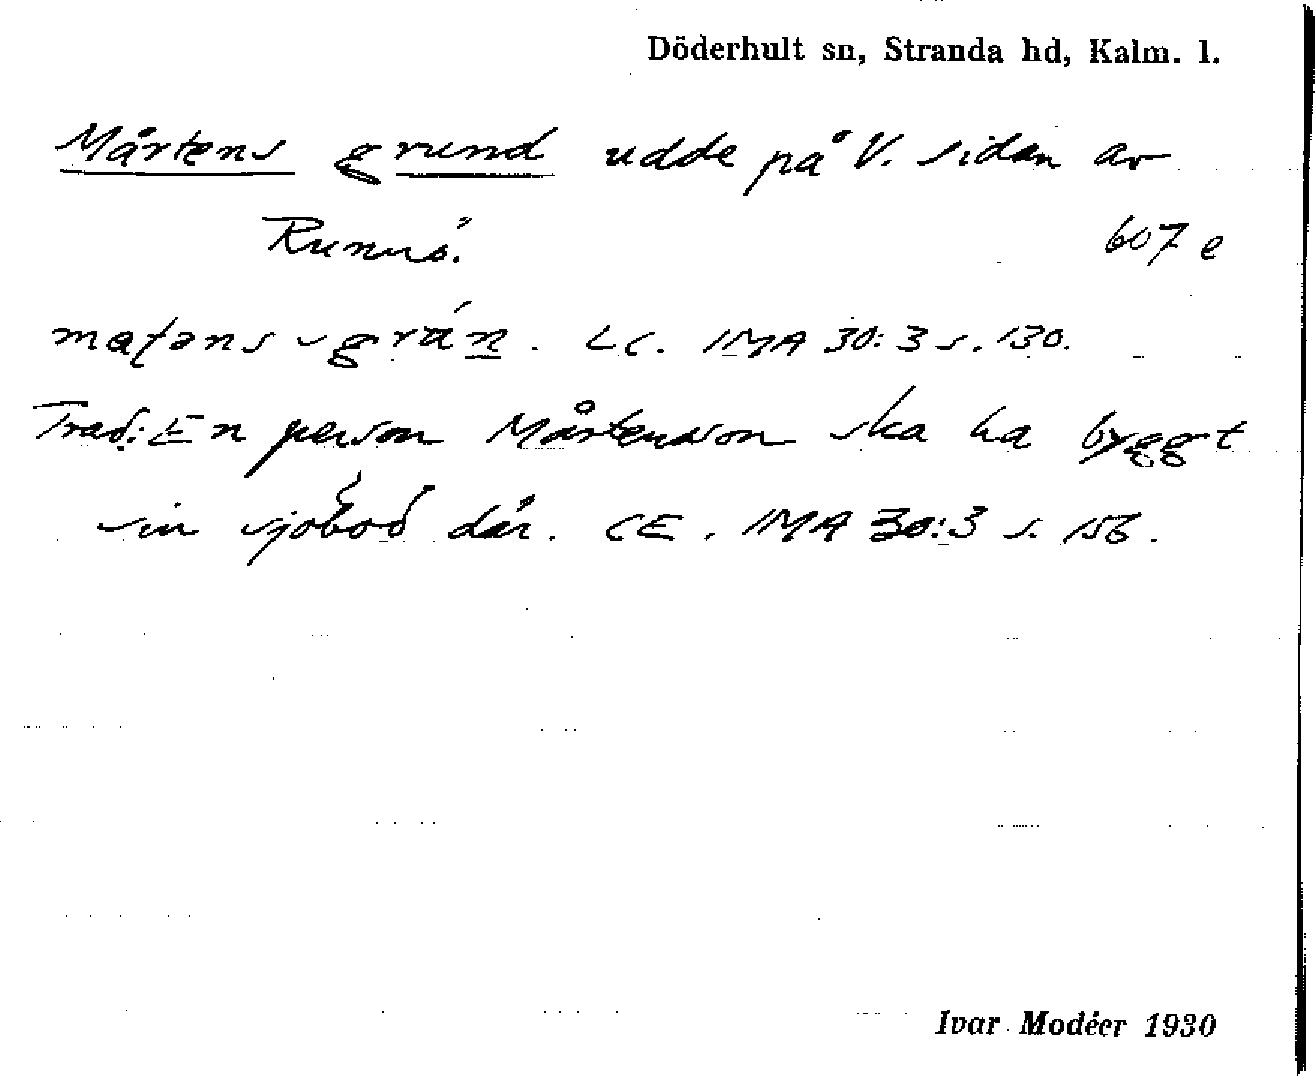 Döderhult sn, Stranda hd, Kalm. l.
Mårtens grund udde på V. sidan av
Runnö.
607 e
LC. IMA 30:3 s. 130.
Trad: En person Mårtensson ska ha byggt
sin sjöbod där. CE. IMA 30:3 s. 156.
Ivar Modéer 1930